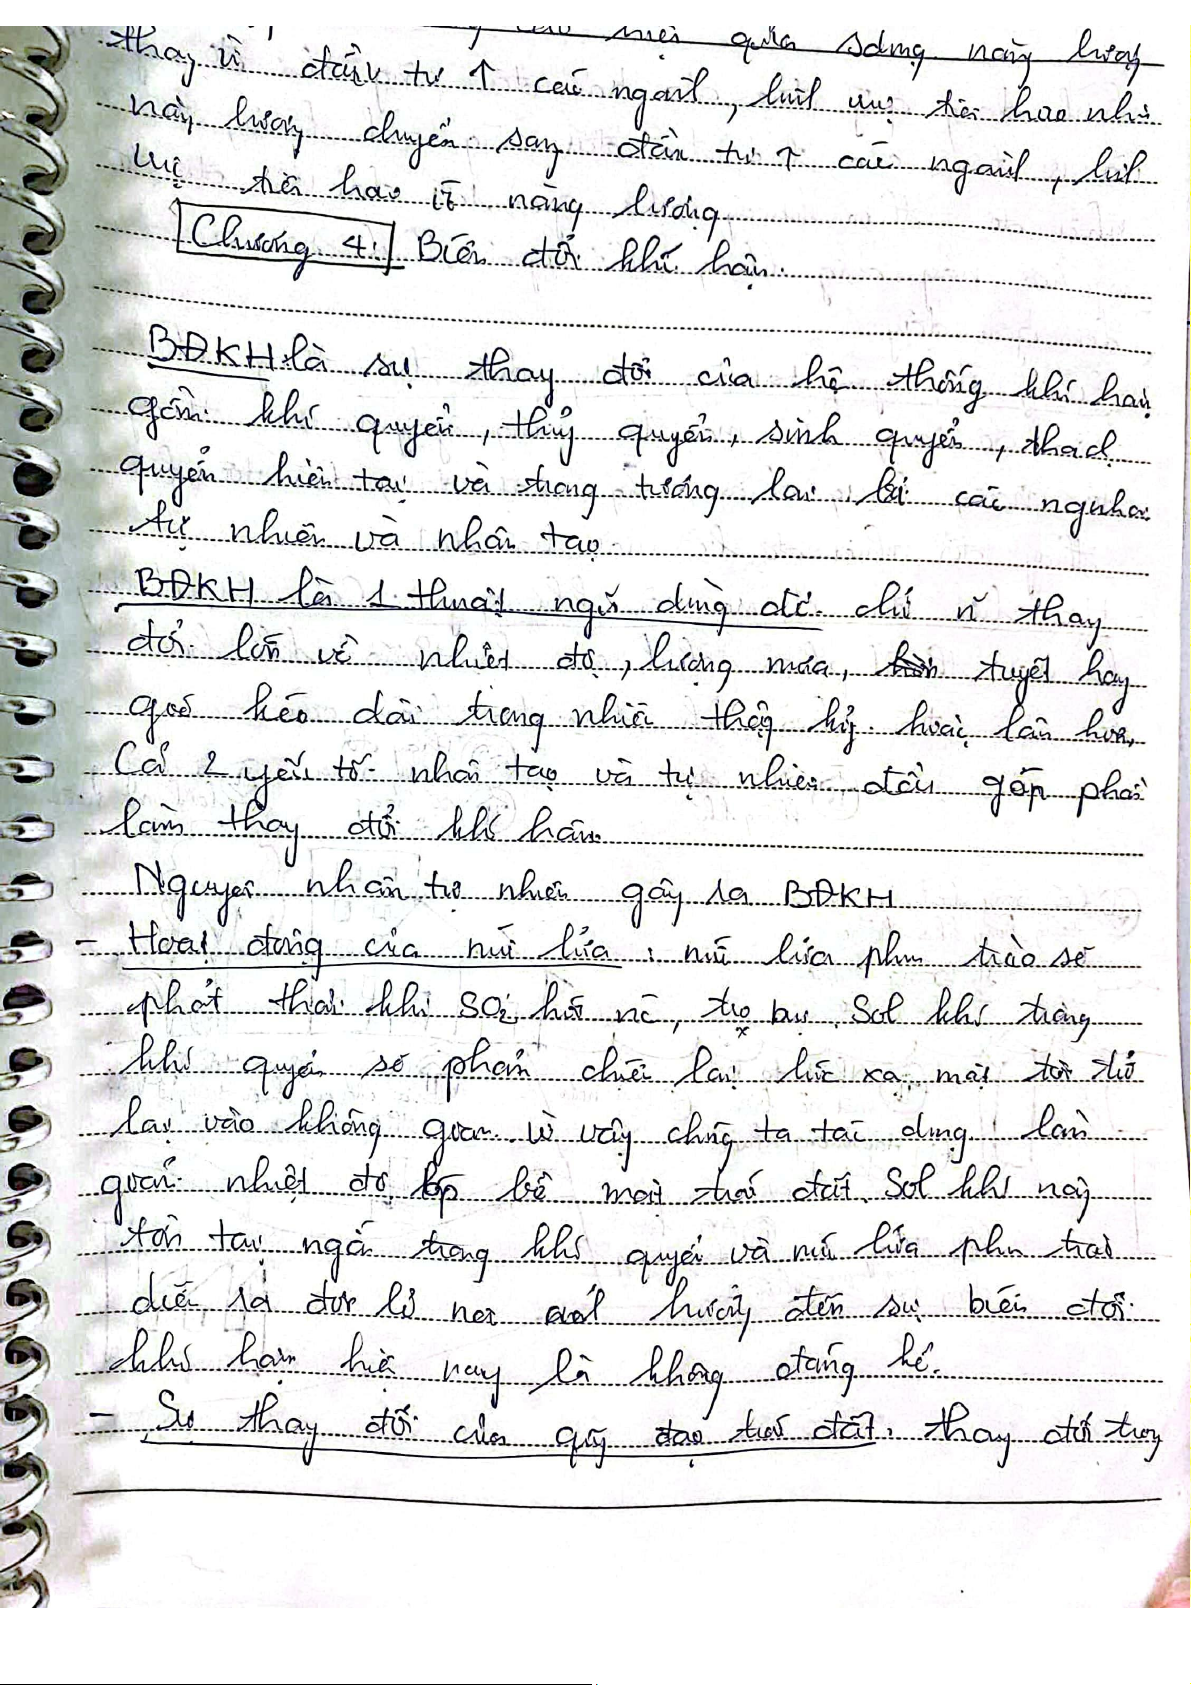 hiệu quả sdụng năng lượng
thay vì đầu tư ↑ các ngành, lvực tiêu hao nhiều
năng lượng chuyển sang đầu tư ↑ các ngành, lvực
tiêu hao ít năng lượng
Chương 4: Biến đổi khí hậu
BĐKH là sự thay đổi của hệ thống khí hậu
gồm khí quyển, thủy quyển, sinh quyển, thạch
quyển hiện tại và trong tương lai bởi các nguyên
tự nhiên và nhân tạo
BĐKH là 1 thuật ngữ dùng để chỉ n~ thay
đổi lớn về nhiệt độ, lượng mưa, tuyết hay
gió kéo dài trong nhiều thập kỷ hoặc lâu hơn.
Cả 2 yếu tố nhân tạo và tự nhiên đều góp phần
làm thay đổi khí hậu
Nguyên nhân tự nhiên gây ra BĐKH
- Hoạt động của núi lửa: núi lửa phun trào sẽ
phát thải khí SO2, hơi nc, tro bụi. Sol khí trong
khí quyển sẽ phản chiếu lại bức xạ mặt trời trở
lại vào không gian vì vậy chúng ta tác dụng làm
giảm nhiệt độ lớp bề mặt trái đất. Sol khí này
tồn tại ngắn trong khí quyển và núi lửa phun trào
diễn ra đơn lẻ nên hưởng đến sự biến đổi
khí hậu hiện nay là không đáng kể.
- Sự thay đổi của quỹ đạo trái đất: thay đổi trong